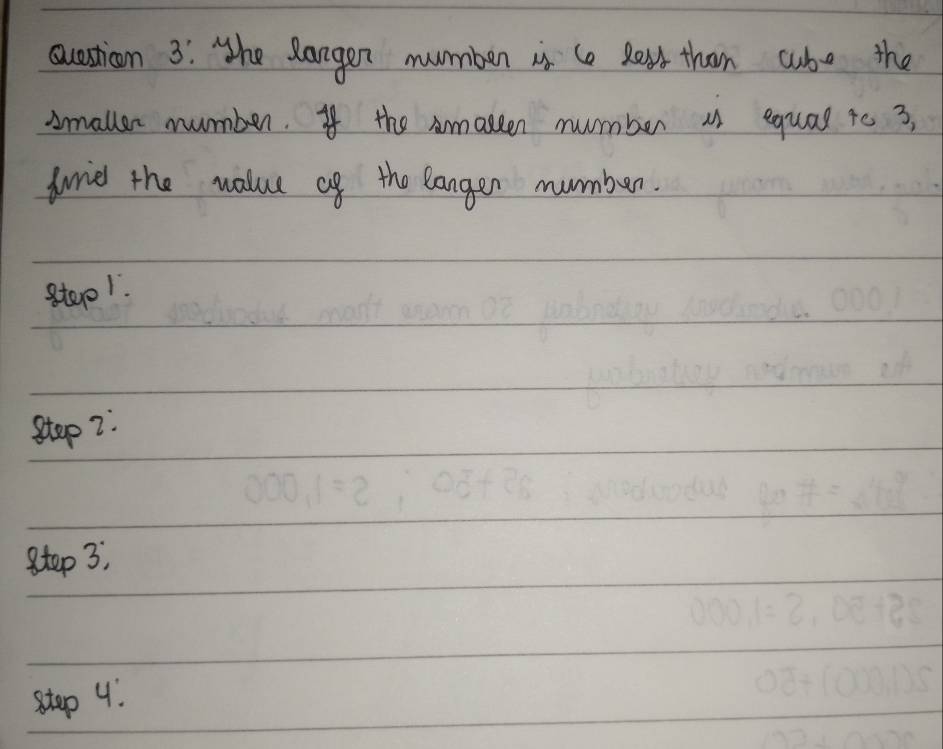 Question 3: The larger number is 6 less than cube the
smaller number. If the smaller number is equal to 3,
find the value of the larger number.
Step 1:
Step 2:
Step 3:
Step 4: